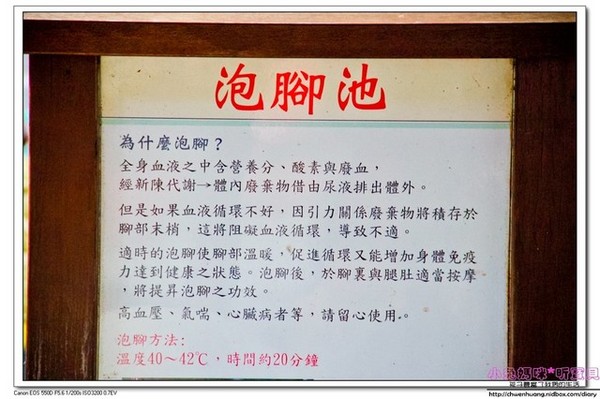 泡腳池
為什麼泡腳？
全身血液之中含營養分、酸素與廢血，
經新陳代謝→體內廢棄物借由尿液排出體外。
但是如果血液循環不好，因引力關係廢棄物將積存於
腳部末梢，這將阻礙血液循環，導致不適。
適時的泡腳使腳部溫暖，促進循環又能增加身體免疫
力達到健康之狀態。泡腳後，於腳裏與腿肚適當按摩
，將提昇泡腳之功效。
高血壓、氣喘、心臟病者等，請留心使用。
泡腳方法:
溫度40～42℃，時間約20分鐘
Canon EOS 550D F5.6 1/200s ISO3200 0.7EV
http://chuenhuang.nidbox.com/diary